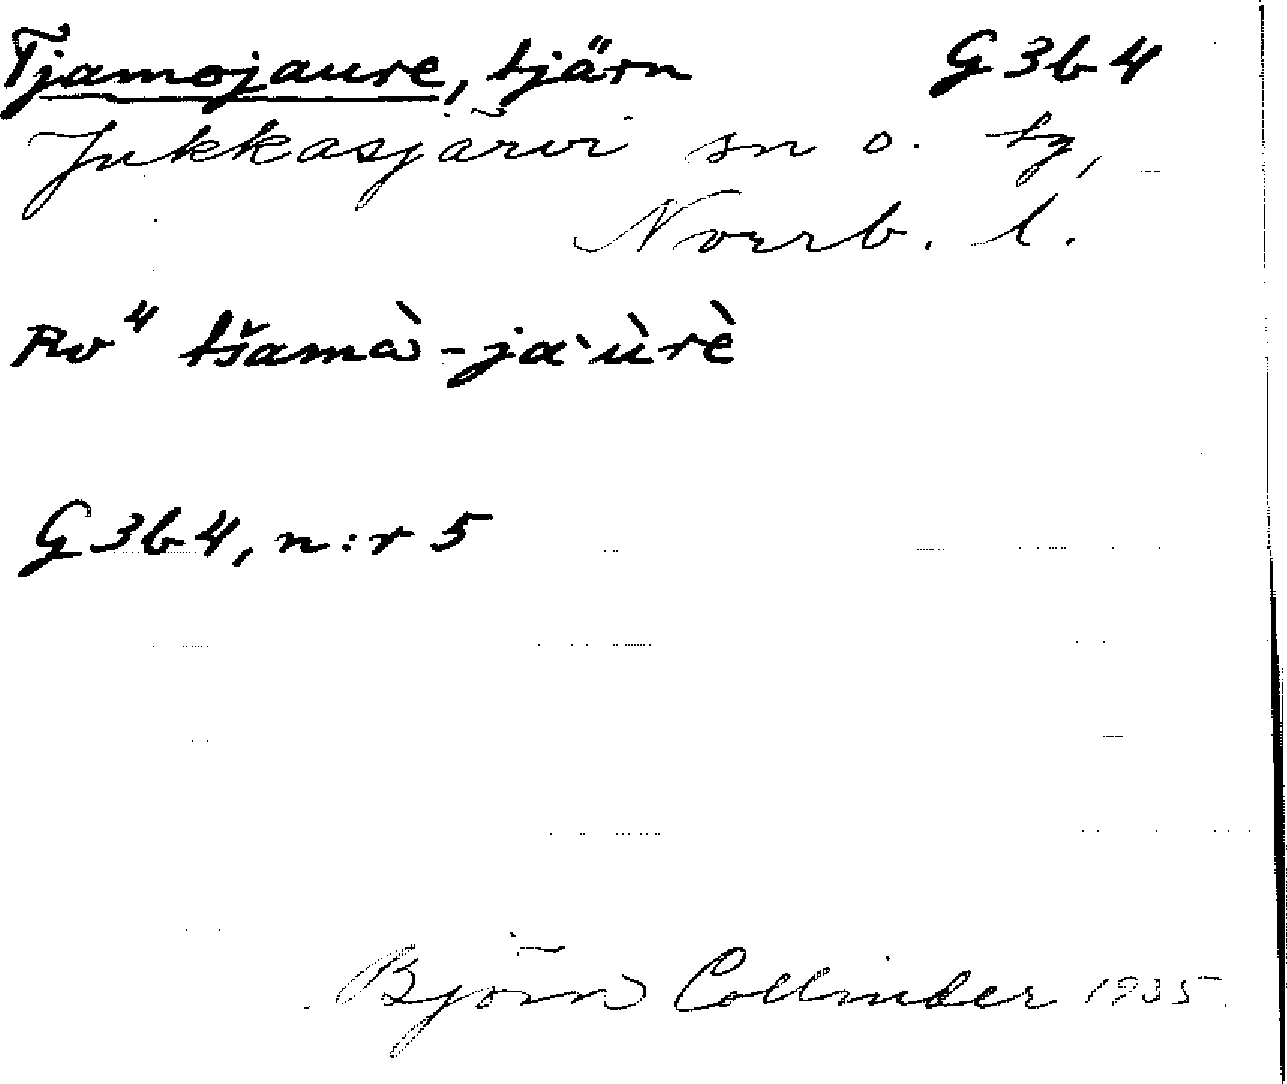 Tjamojaure, tjärn G 3b 4
Jukkasjärvi sn o. tg,
Norrb. l.
Ro⁴ tšamὰ-ja`ùrè
G 3b 4, n:r 5
Björn Collinder 1935